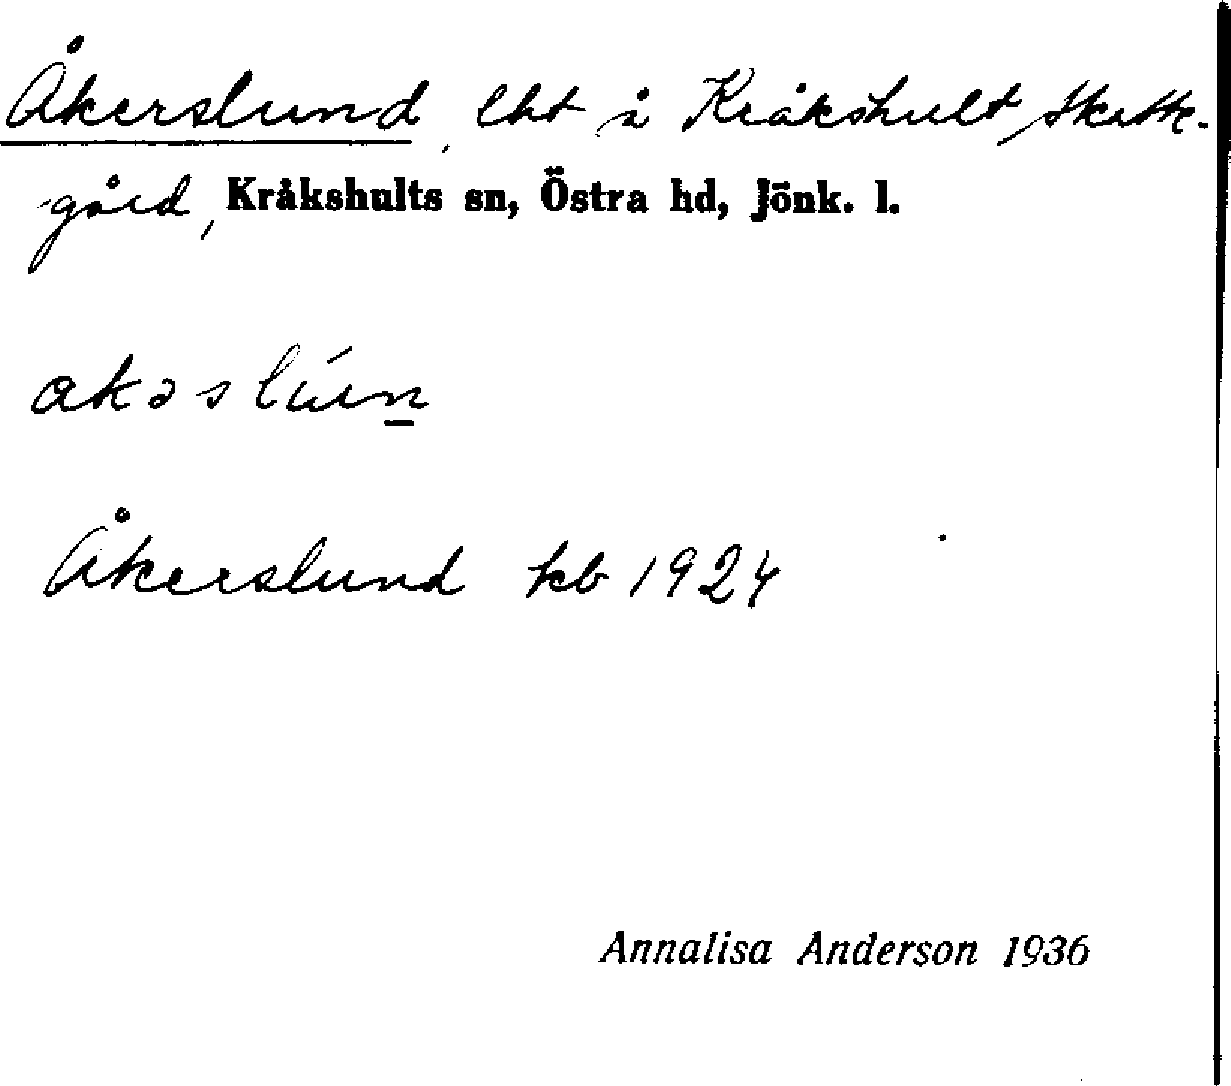 Åkerslund, lht å Kråkshult Skatte-
gård, Kråkshults sn, Östra hd, Jönk. l.
akəslún
Åkerslund kb 1924
Annalisa Anderson 1936